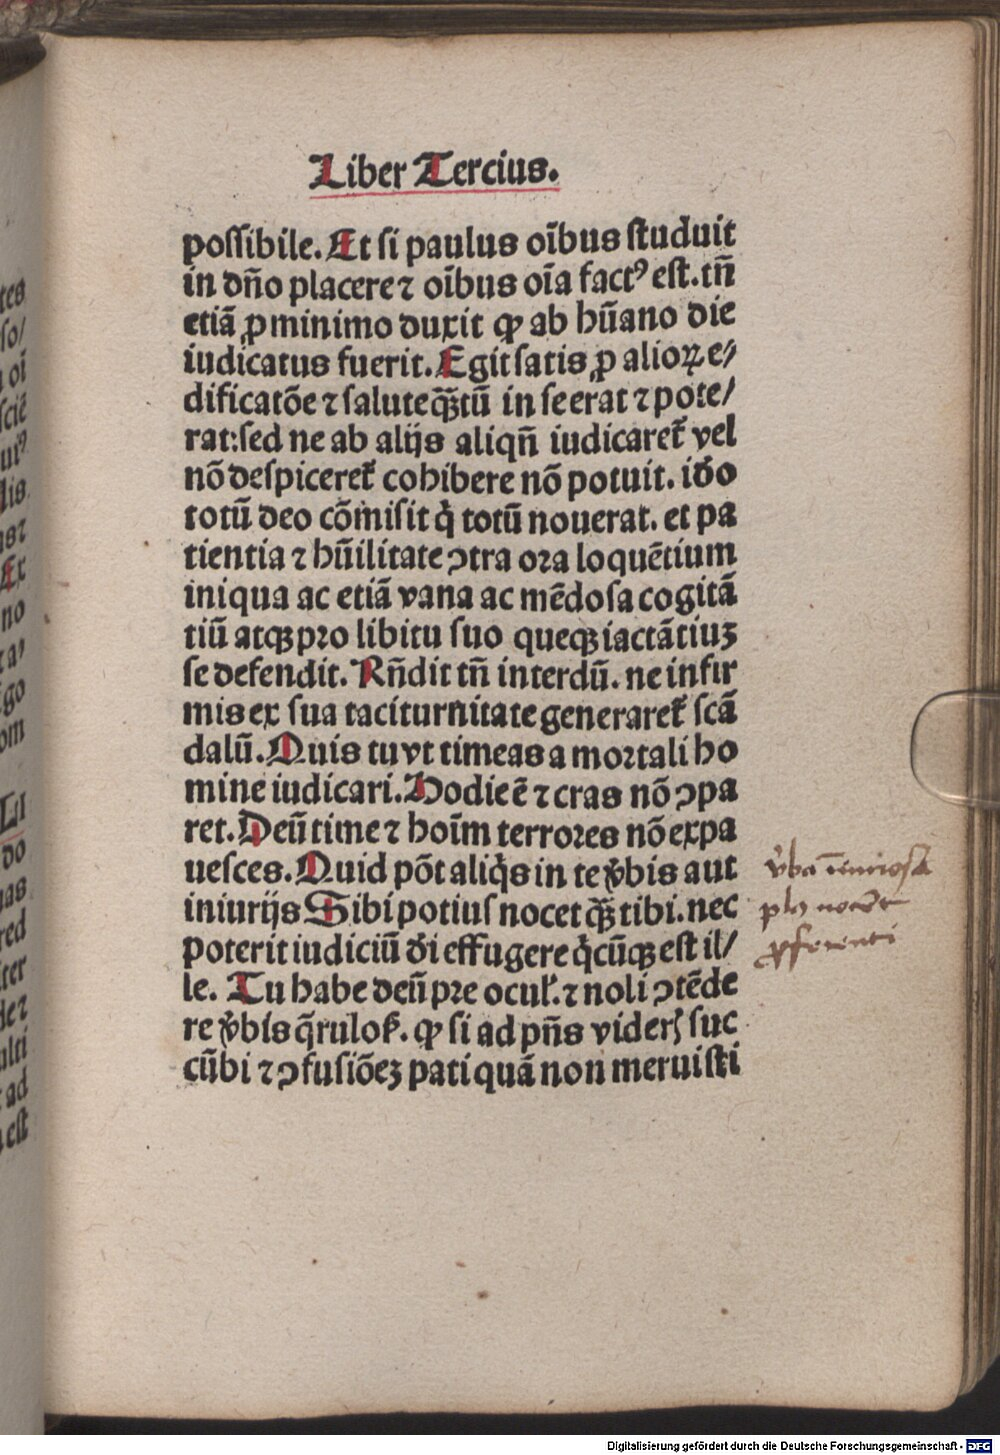 Liber Tercius.
possibile. Et si paulus oı̄bus studuit
in dn̄o placere ⁊ oı̄bus oı̄a factꝰ est. tn̄
etiā ꝓ minimo duxit ꝙ ab hūano die
iudicatus fuerit. Egit satis ꝓ alioꝝ e⸗
dificatōe ⁊ salute qꝫ̄tū in se erat ⁊ pote/
rat: sed ne ab alijs aliqn̄ iudicaret᷑ vel
nō despiceret᷑ cohibere nō potuit. iđo
totū deo cōmisit q̇ totū nouerat. et pa
tientia ⁊ hūilitate ↄtra ora loquētium
iniqua ac etiā vana ac mēdosa cogitā
tiū atqꝫ pro libitu suo queqꝫ iactātiuꝫ
se defendit. Rn̄dit tn̄ interdū. ne infir
mis ex sua taciturnitate generaret᷑ scā
dalū. Quis tu vt timeas a mortali ho
mine iudicari. Hodie ē ⁊ cras nō ↄpa
ret. Deū time ⁊ hoı̄m terrores nō expa
uesces. Quid pōt aliq̇s in te v̓bis aut
iniurijs Sibi potius nocet qꝫ̄ tibi. nec
poterit iudiciū đi effugere q̇cūqꝫ est il/
le. Tu habe deū pre ocul̓. ⁊ noli ↄtēde
re v̓bis q̄rulos̓. ꝙ si ad pn̄s viderꝭ suc
cūbi ⁊ ↄfusiōeꝫ pati quā non meruisti
v̓ba iniuriosa
plꝰ nocēt
ꝓferenti
tes
so/
oı̄
sciē
uiꝰ
lis
as⁊
Ex
no
ra,
go
om
Li
do
nas
red
ter
de⁊
ulti
ad
est
Digitalisierung gefördert durch die Deutsche Forschungsgemeinschaft - DFG